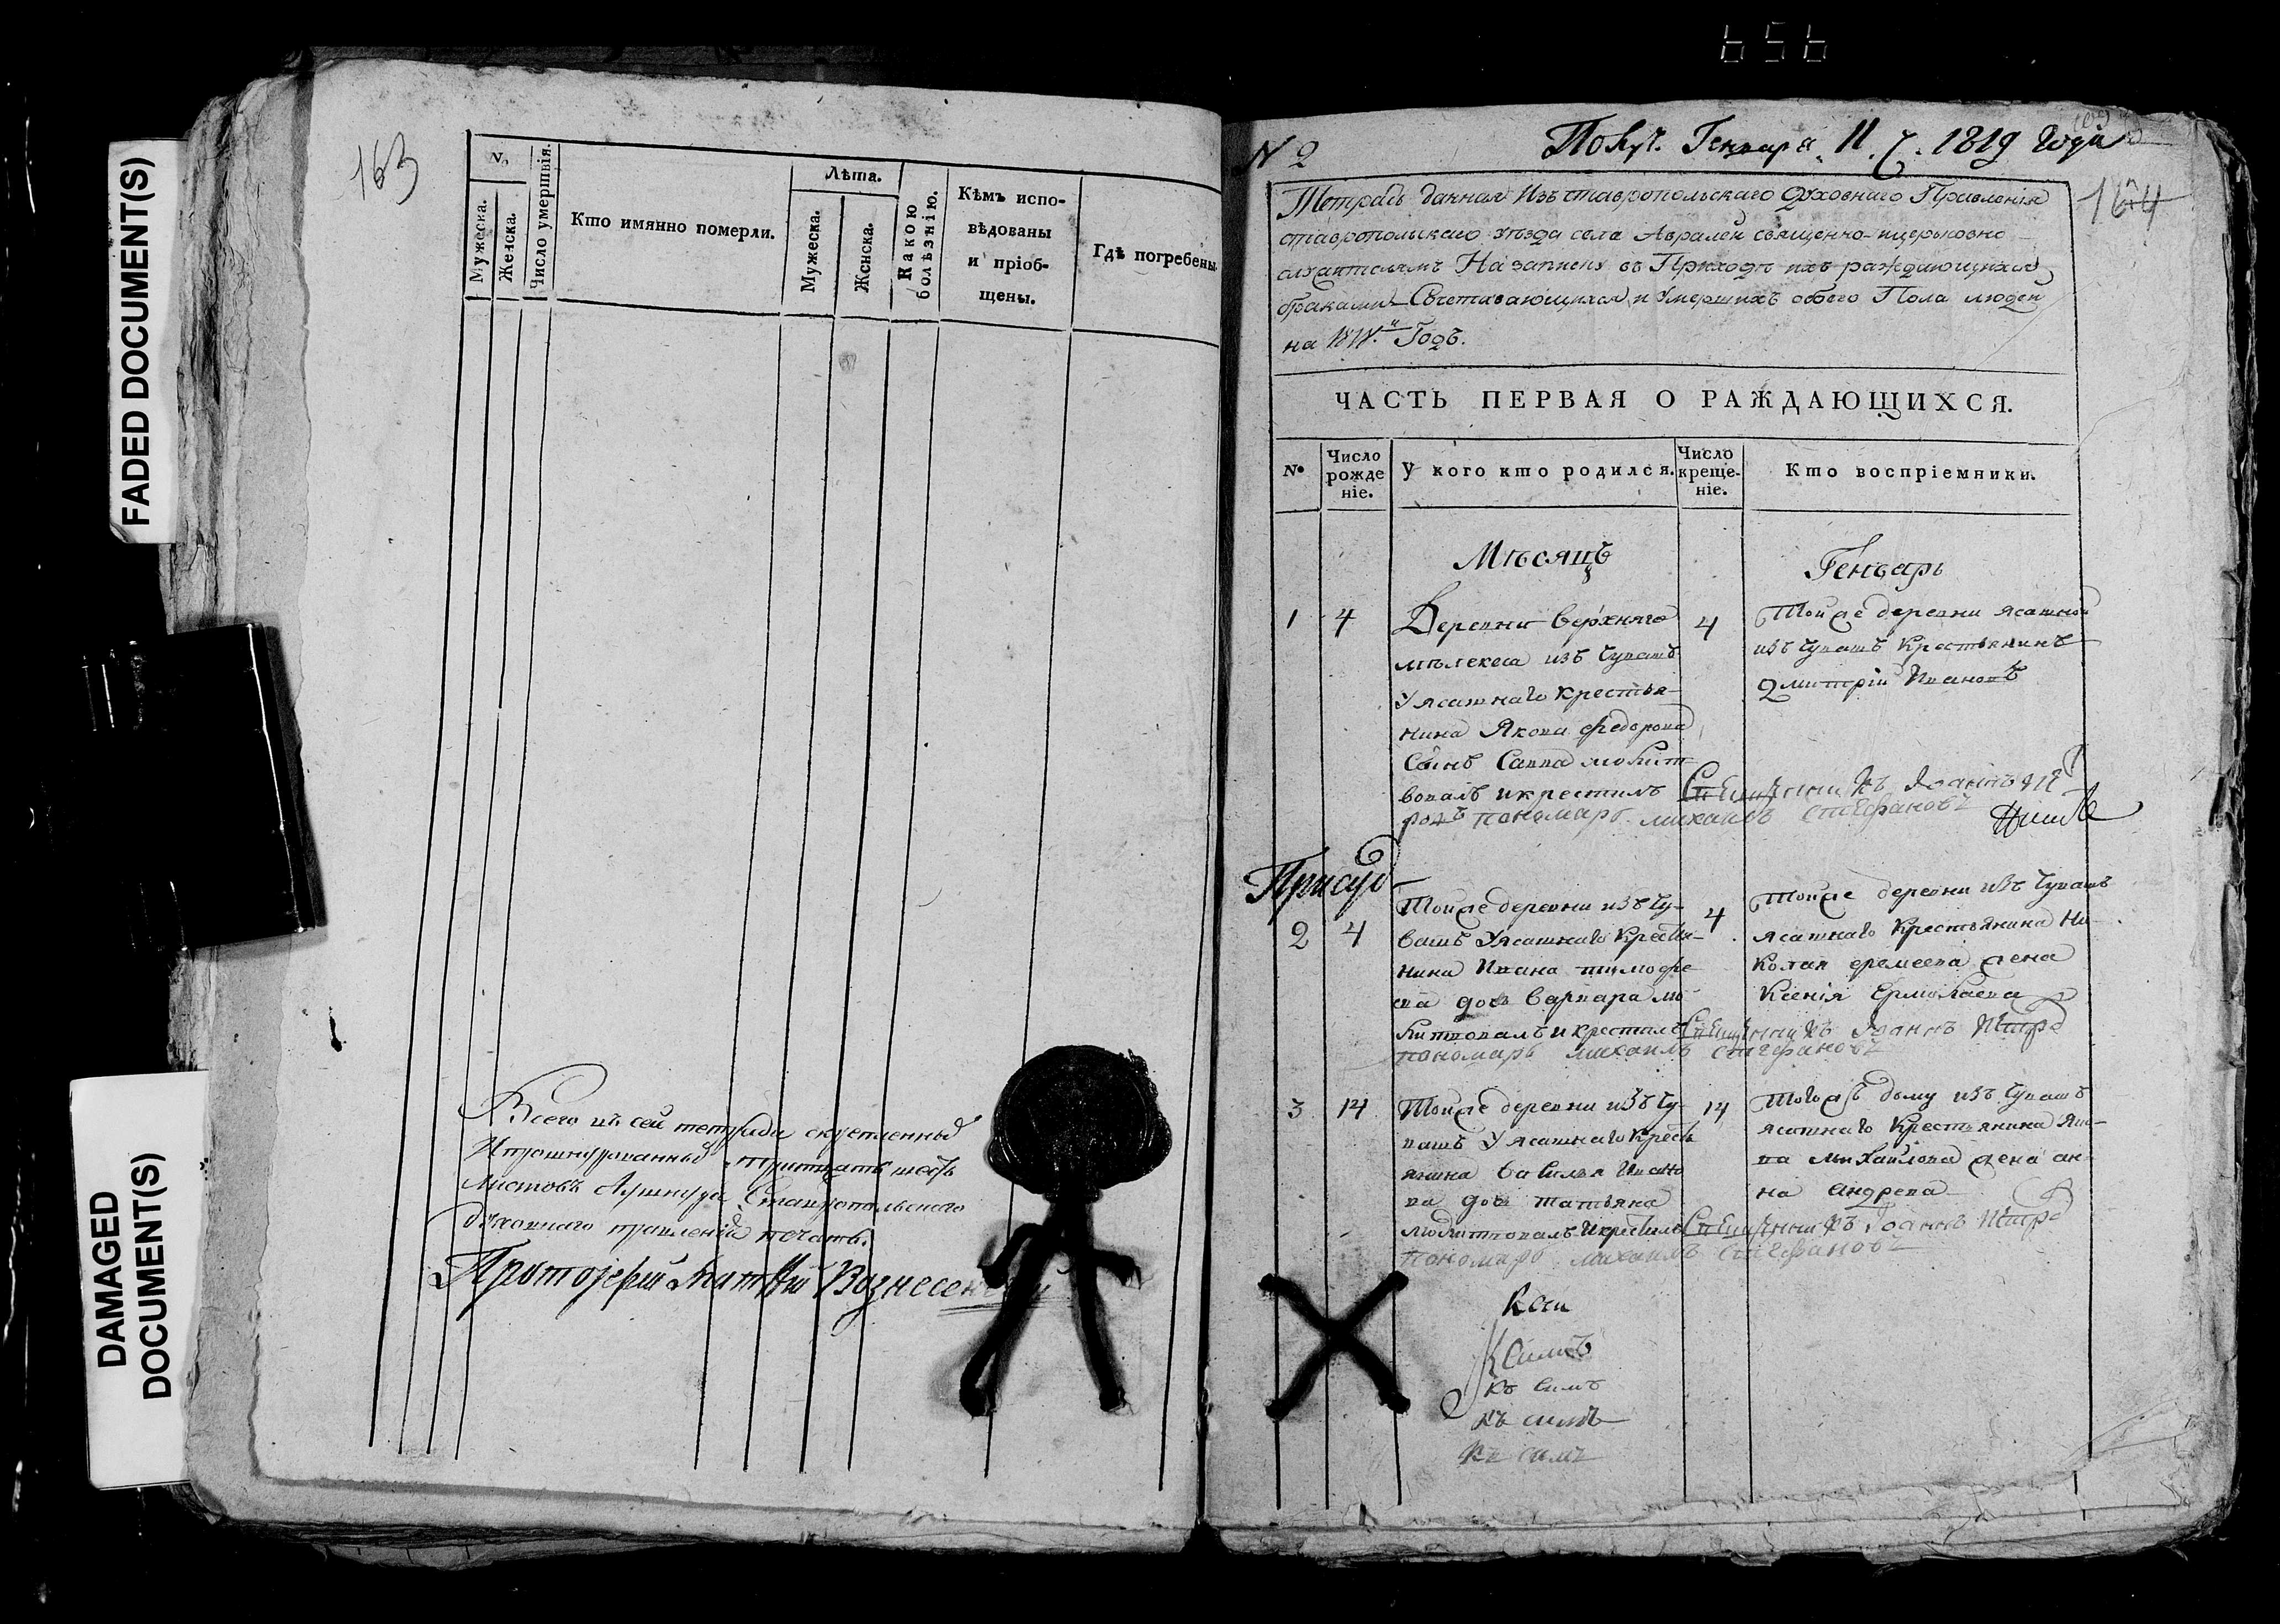 FADED DOCUMENT(S)
DAMAGED
DOCUMENT(S)
163
№
Мужеска.
Женска.
Число умертвія.
Кто имянно померли.
Лѣта.
Мужеска.
Женска.
Какою
болѣзнію.
Кѣмъ испо-
вѣдованы
и пріоб-
щены.
Гдѣ погребены.
Всего въ сей тетради скрепленныхъ
И прошнурованныхъ тритцать шесть
листовъ Ушнура Ставропольского
духовнаго правленія печать.
Протоіерей Матвѣй Вознесенскій
656
N 2
Получ. Генваря 11. 1819 года
164
Тетрадь данная Изъ ставропольскаго Духовнаго Правленія
ставропольскаго уезда села Авралей священно-ицерьковно
служителямъ На записку въ Приходѣ ихъ раждающихся
браками Сочетавающихся и Умершихъ обоего Пола людей
на Годъ.
ЧАСТЬ ПЕРВАЯ О РАЖДАЮЩИХСЯ.
№
Число
рожде
ніе.
У кого кто родился.
Число
креще-
ніе.
Кто воспріемники.
Мѣсяцъ
Генварь
1 4
Деревни верхняго
мѣлекеса изъ Чувашъ
У ясашнаго крестья-
нина Якова Федорова
Сынъ Савва молит
вовалъ икрестилъ Священникъ Іоаннъ
пономарь михаилъ стефановъ
4
Тойже деревни ясашной
изъ Чувашъ Крестьянинъ
Дмитрій Ивановъ
2 4
Тойже деревни изъ Чу-
вашъ Уясашнаго Кресть-
нина Ивана тимофе
ева дочь варвара мо
литвовалъ икрестилъ Священникъ Іоаннъ Петро
пономарь михаилъ стефановъ
4
Тойже деревни изъ Чувашъ
ясашнаго Крестьянина Ни-
колая еремеева жена
Ксенія Ермолаева
3 14
Тойже деревни изъ Чу-
вашъ Уясашнаго Кресть
янина василья Ивано
ва дочь татьяна
молитвовалъ икрестилъ Священникъ Іоаннъ Петро
пономарь михаилъ стефановъ
14
Тогожъ дому изъ Чувашъ
ясашнаго Крестьянина Яко-
ва михайлова жена ан-
на андреева
Къ симъ
къ симъ
къ симъ
къ симъ